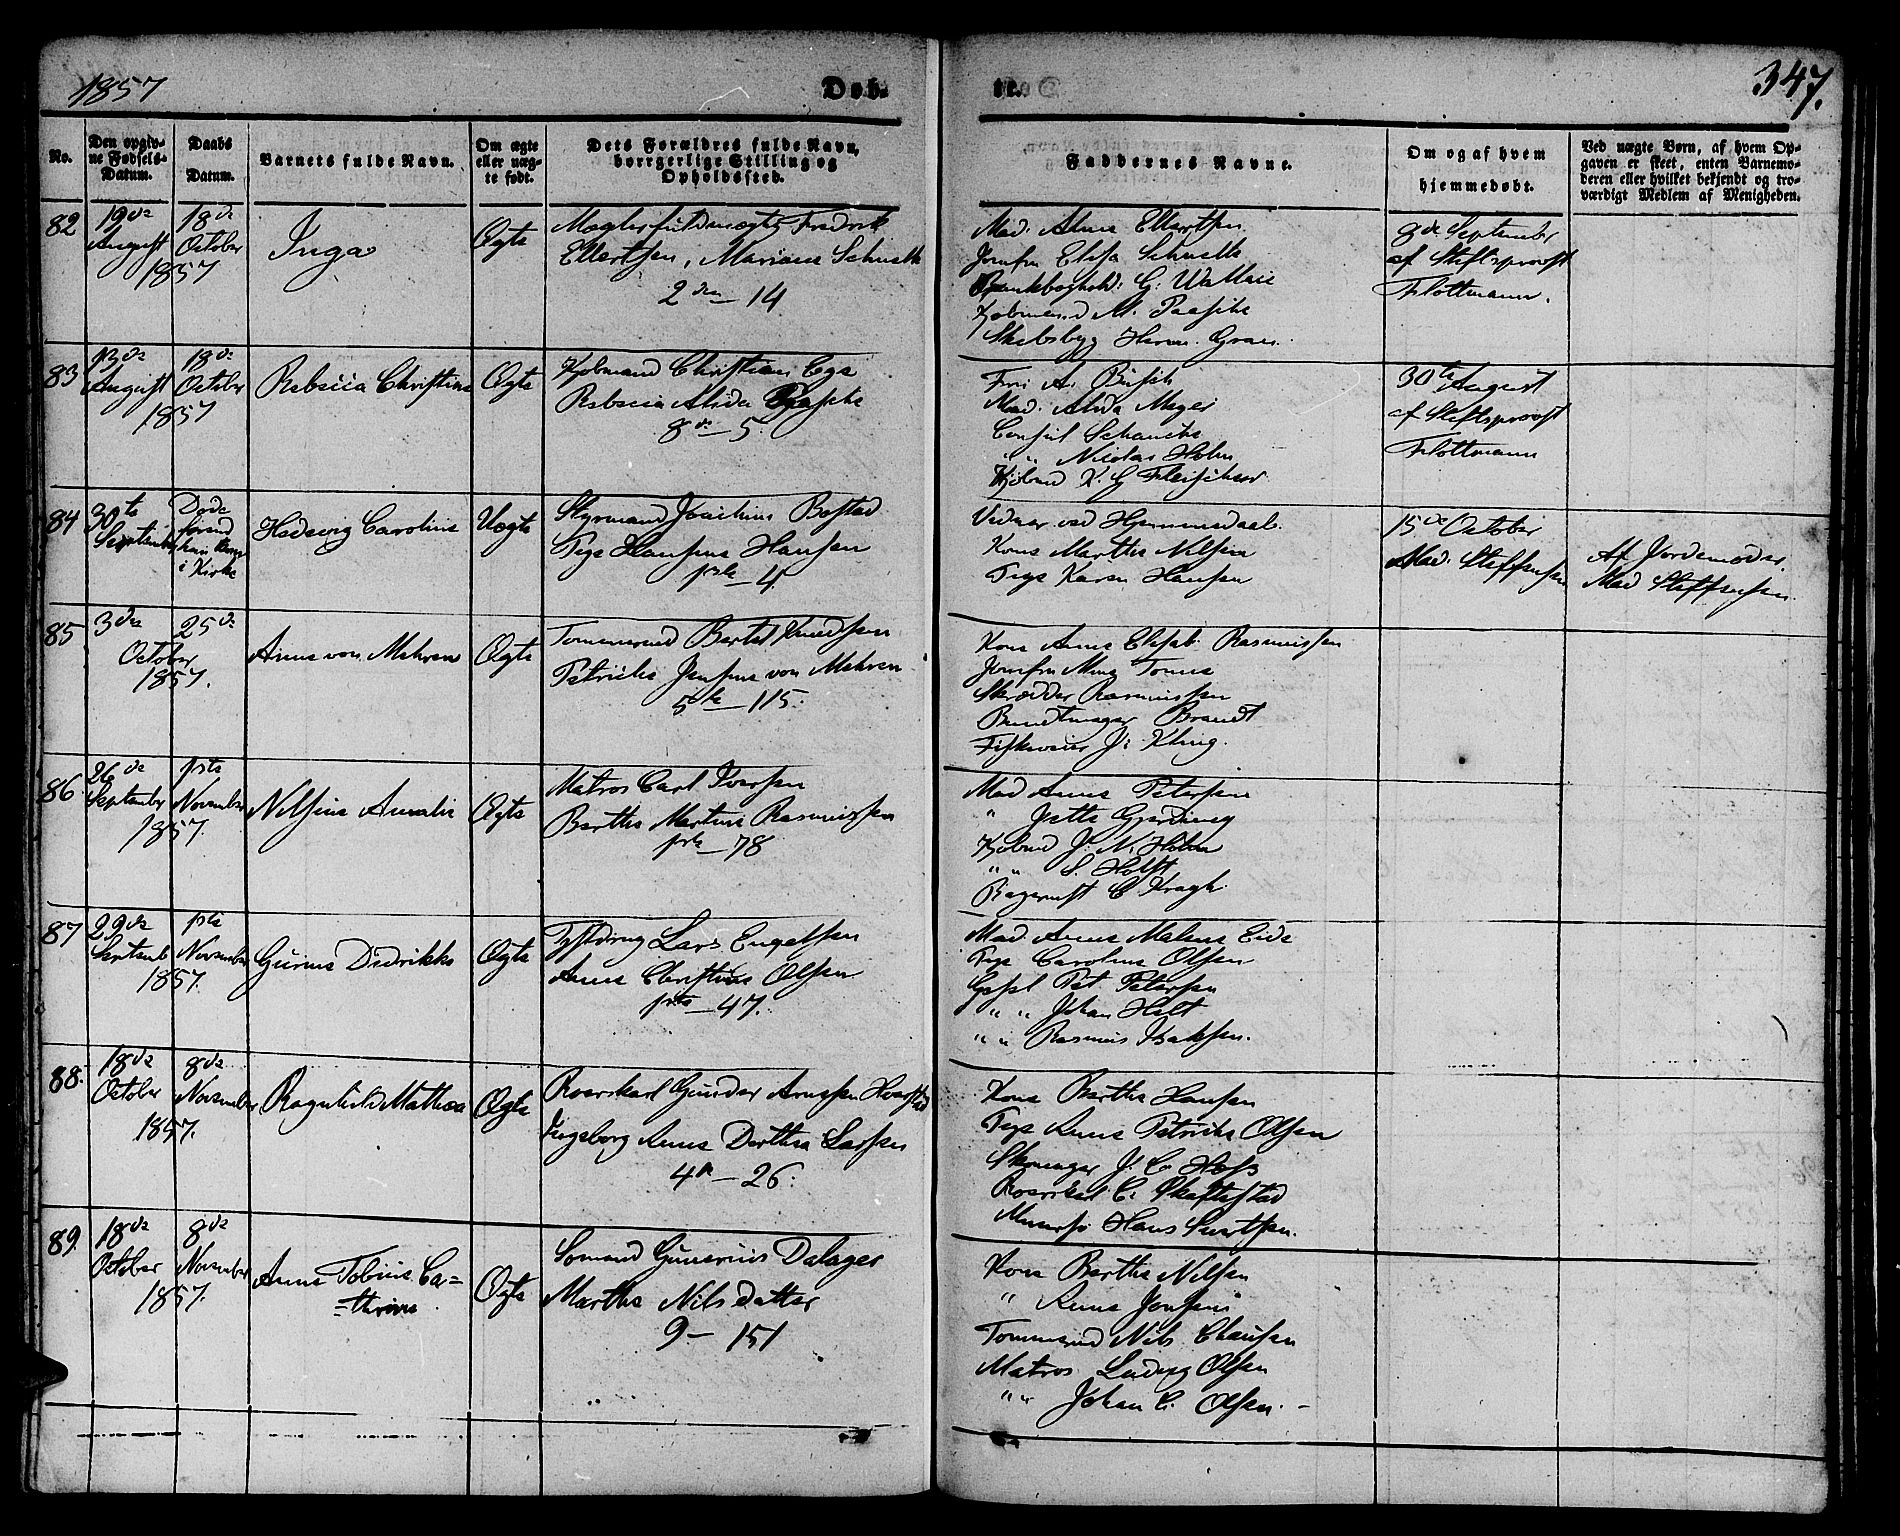 1857
Døb-
te.
347.
No.
Den opgiv-
ne Fødsels-
Datum.
Daabs
Datum.
Barnets fulde Navn.
Om ægte
eller uæg-
te født.
Dets Forældres fulde Navn,
borgerlige Stilling og
Opholdssted.
Faddernes Navne.
Om og af hvem
hjemmedøbt.
Ved uægte Børn, af hvem Op-
gaven er skeet, enten Barnemo-
deren eller hvilket bekjendt og tro-
værdigt Medlem af Menigheden.
82
19de
August
18de
October
1857
Inga
Ægte
Mæglerfuldmægtig Fredrik
Ellertsen, Mariane
2den - 14
Mad. Anna Ellertsen
Jomfru Elisa
G. Wallace
Kjøbmand M. Paasche
Skibsbyg Herm. Gran.
8de September
af Stiftsprovst
Flottmann.
83
13de
August
18de
October
1857
Rebecca Christine
Ægte
Kjøbmand Christian Ege
Rebecca Alida Paasche
8de - 5.
Fru A. Büsch
Mad. Alida Meyer
Consul Schancke
" " Nicolai Holm
Kjøbmd K. G. Fleischer
30te August
af Stiftsprovst
Flottmann
84
30te
September
Døde
førend
han kom
i Kirke
Hedevig Caroline
Uægte
Styrmand Joachim Bøstad
Pige Hansine Hansen
1ste - 4.
Vidner ved Hjemmedaab.
Kone Marthe Nilsen
Pige Karen Hansen
15de October
Mad. Steffensen
Af Jordemoder
Mad Steffensen.
85
3die
25de
October
1857.
Anna von Mehren
Ægte
Tømmermd Bertel Knudsen
Petricke Jensine von Mehren
5te - 115.
Kone Anna Elisab. Rasmussen
Jomfru Tonne
Skrædder Rasmussen
Bundtmager Brandt
J. Kling.
86
26de
September
1ste
November
1857.
Nilsine Amalie
Ægte
Matros Carl Iversen
Berthe Martine Rasmussen
1ste - 78
Mad Anna Petersen
" Jette Gjerding
Kjøbmd J. N. Holm
" " S. Holst
Bagermst C Kragh.
87
29de
Septemb
1ste
November
1857.
Gurine Didrikke
Ægte
Lars Engelsen
Anna Christine Olsen
1ste - 47.
Mad. Anna Malene Eide
Pige Caroline Olsen
Gesel Pet Petersen
" " Johan Holt
" " Rasmus Isaksen.
88.
18de
October
8de
November
1857.
Ragnhild Mathea
Ægte
Roerskarl Gunder Arnesen
Ingeborg Anna Dorthea Larsen
4de - 26.
Kone Berthe Hansen
Pige Anna Petricke Olsen
Skomager J. C. Hoff
Roerskarl C.
Hans Siversen.
89.
18de
October
8de
November
1857.
Anna Tobine Ca=
=thrine.
Ægte
Sømand Gunerius Dalager
Marthe Nils datter
9 - 151
Kone Berthe Nilsen
" Anna Jonsen
Tømmermd Nils Clausen
Matros Ludvig Olsen
" " Johan C. Olsen.